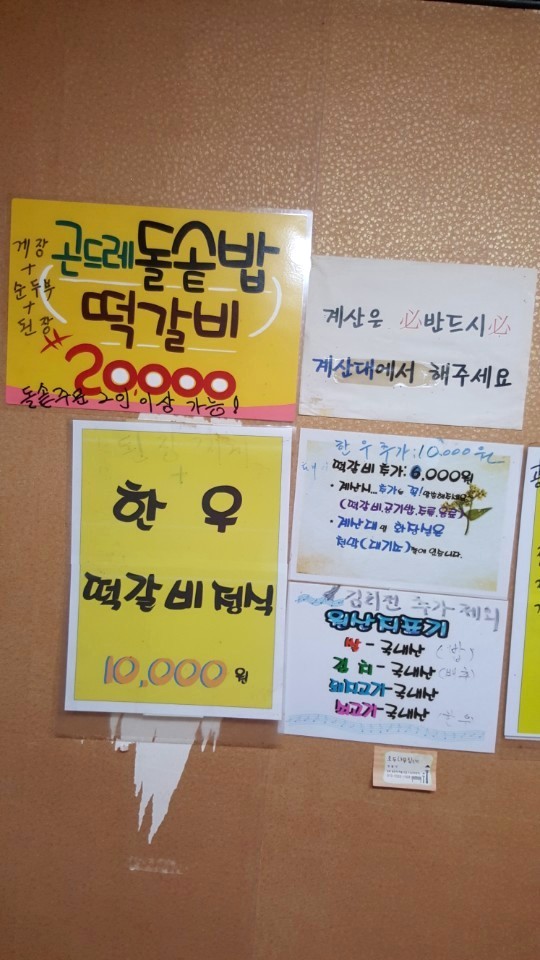 게장
+
순두부
+
된장
곤드레돌솥밥
떡갈비
20000
돌솥주문 2인 이상 가능!
계산은 必반드시必
계산대에서 해주세요
한우
떡갈비정식
10,000원
한우추가:10,000원
떡갈비 추가: 6,000원
• 계산시... 추가는 꼭!
(떡갈비.공기밥.두루.음료)
• 계산대 화장실은
천막(대기소) 있습니다.
김치전 추가 제외
원산지표기
쌀-국내산 (밥)
김치-국내산 (배추)
돼지고기-국내산
소고기-국내산 한우